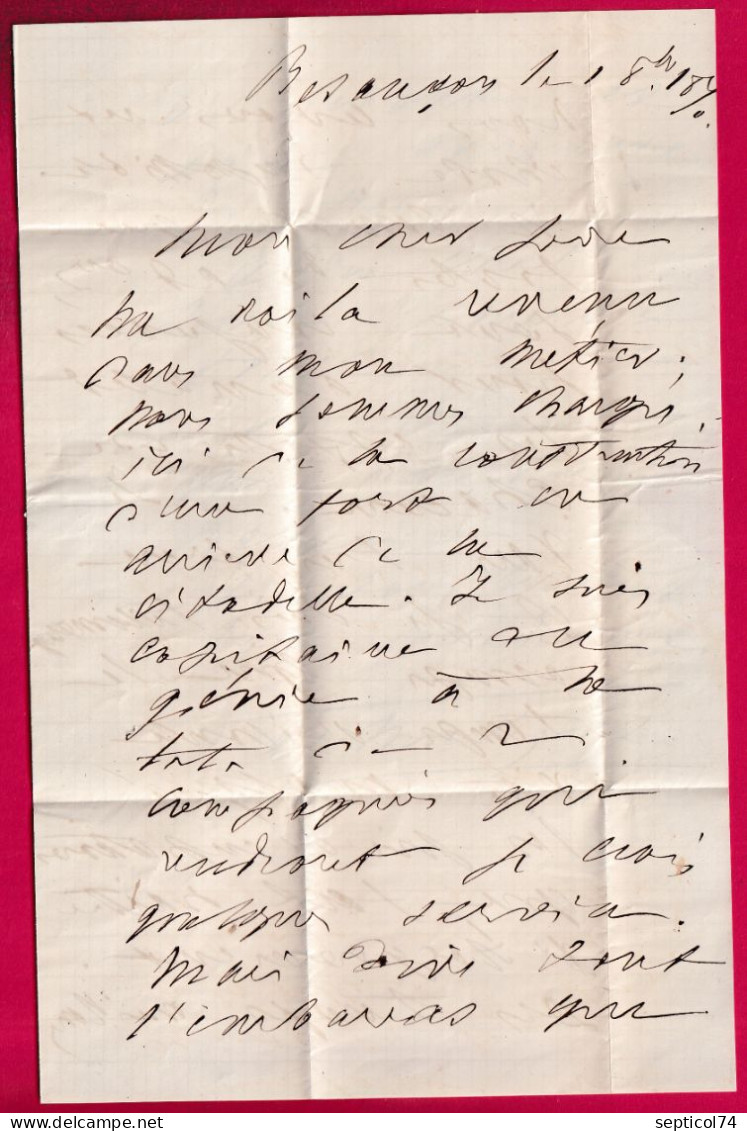 Besançon le 1 8bre 1870.
Mon cher père
Me voila revenu
dans mon métier;
nous sommes chargés
ici de la construction
d'un fort en
arrière de la
citadelle. Je suis
capitaine du
génie à la
tete de 2
compagnies qui
rendront je crois
quelques services.
Mais dire tout
l'embarras que
septicol74